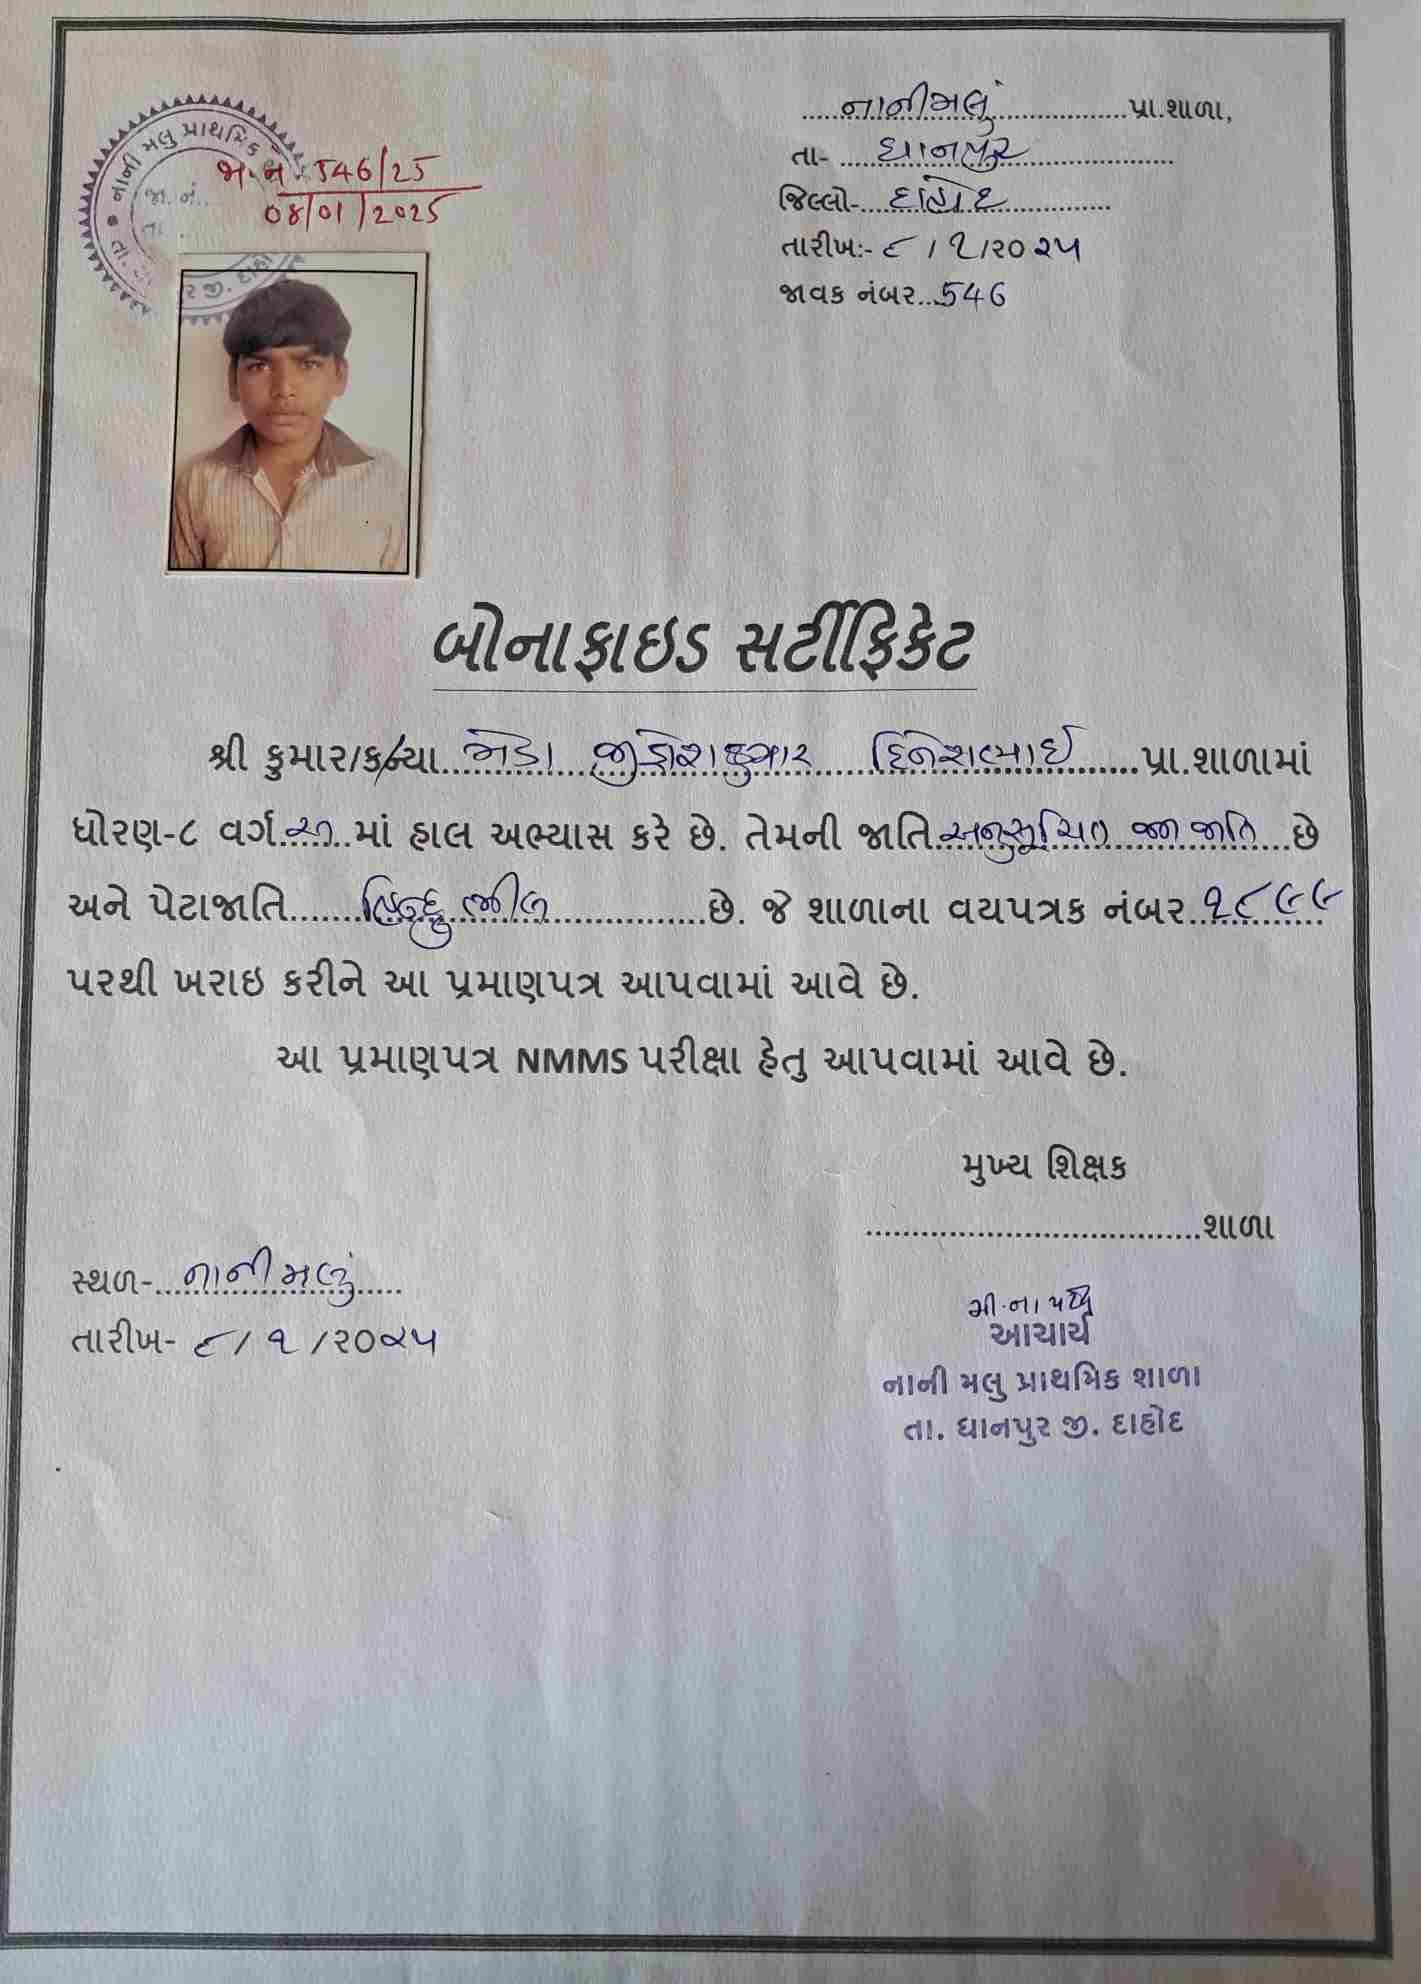 નાની મલુ પ્રાથમિક
જા. નં.
તા.
જા.નં 546/25
08/01/2025
ર જી. દાહો
નાનીમલું પ્રા.શાળા,
તા- ધાનપુર
જિલ્લો- દાહોદ
તારીખ:- ૮ / ૧ /૨૦ ૨૫
જાવક નંબર...546
બોનાફાઇડ સર્ટીફિકેટ
શ્રી કુમાર/કન્યા મેડા જીજ્ઞેશકુમાર દિનેશભાઈ પ્રા.શાળામાં
ધોરણ-૮ વર્ગ અ માં હાલ અભ્યાસ કરે છે. તેમની જાતિ અનુસૂચિત જન જાતિ છે
અને પેટાજાતિ હિન્દુ ભીલ છે. જે શાળાના વયપત્રક નંબર ૧૮૯૯
પરથી ખરાઇ કરીને આ પ્રમાણપત્ર આપવામાં આવે છે.
આ પ્રમાણપત્ર NMMS પરીક્ષા હેતુ આપવામાં આવે છે.
મુખ્ય શિક્ષક
શાળા
સ્થળ- નાનીમલું
તારીખ- ૮ / ૧ /૨૦૨૫
આચાર્ય
નાની મલુ પ્રાથમિક શાળા
તા. ધાનપુર જી. દાહોદ